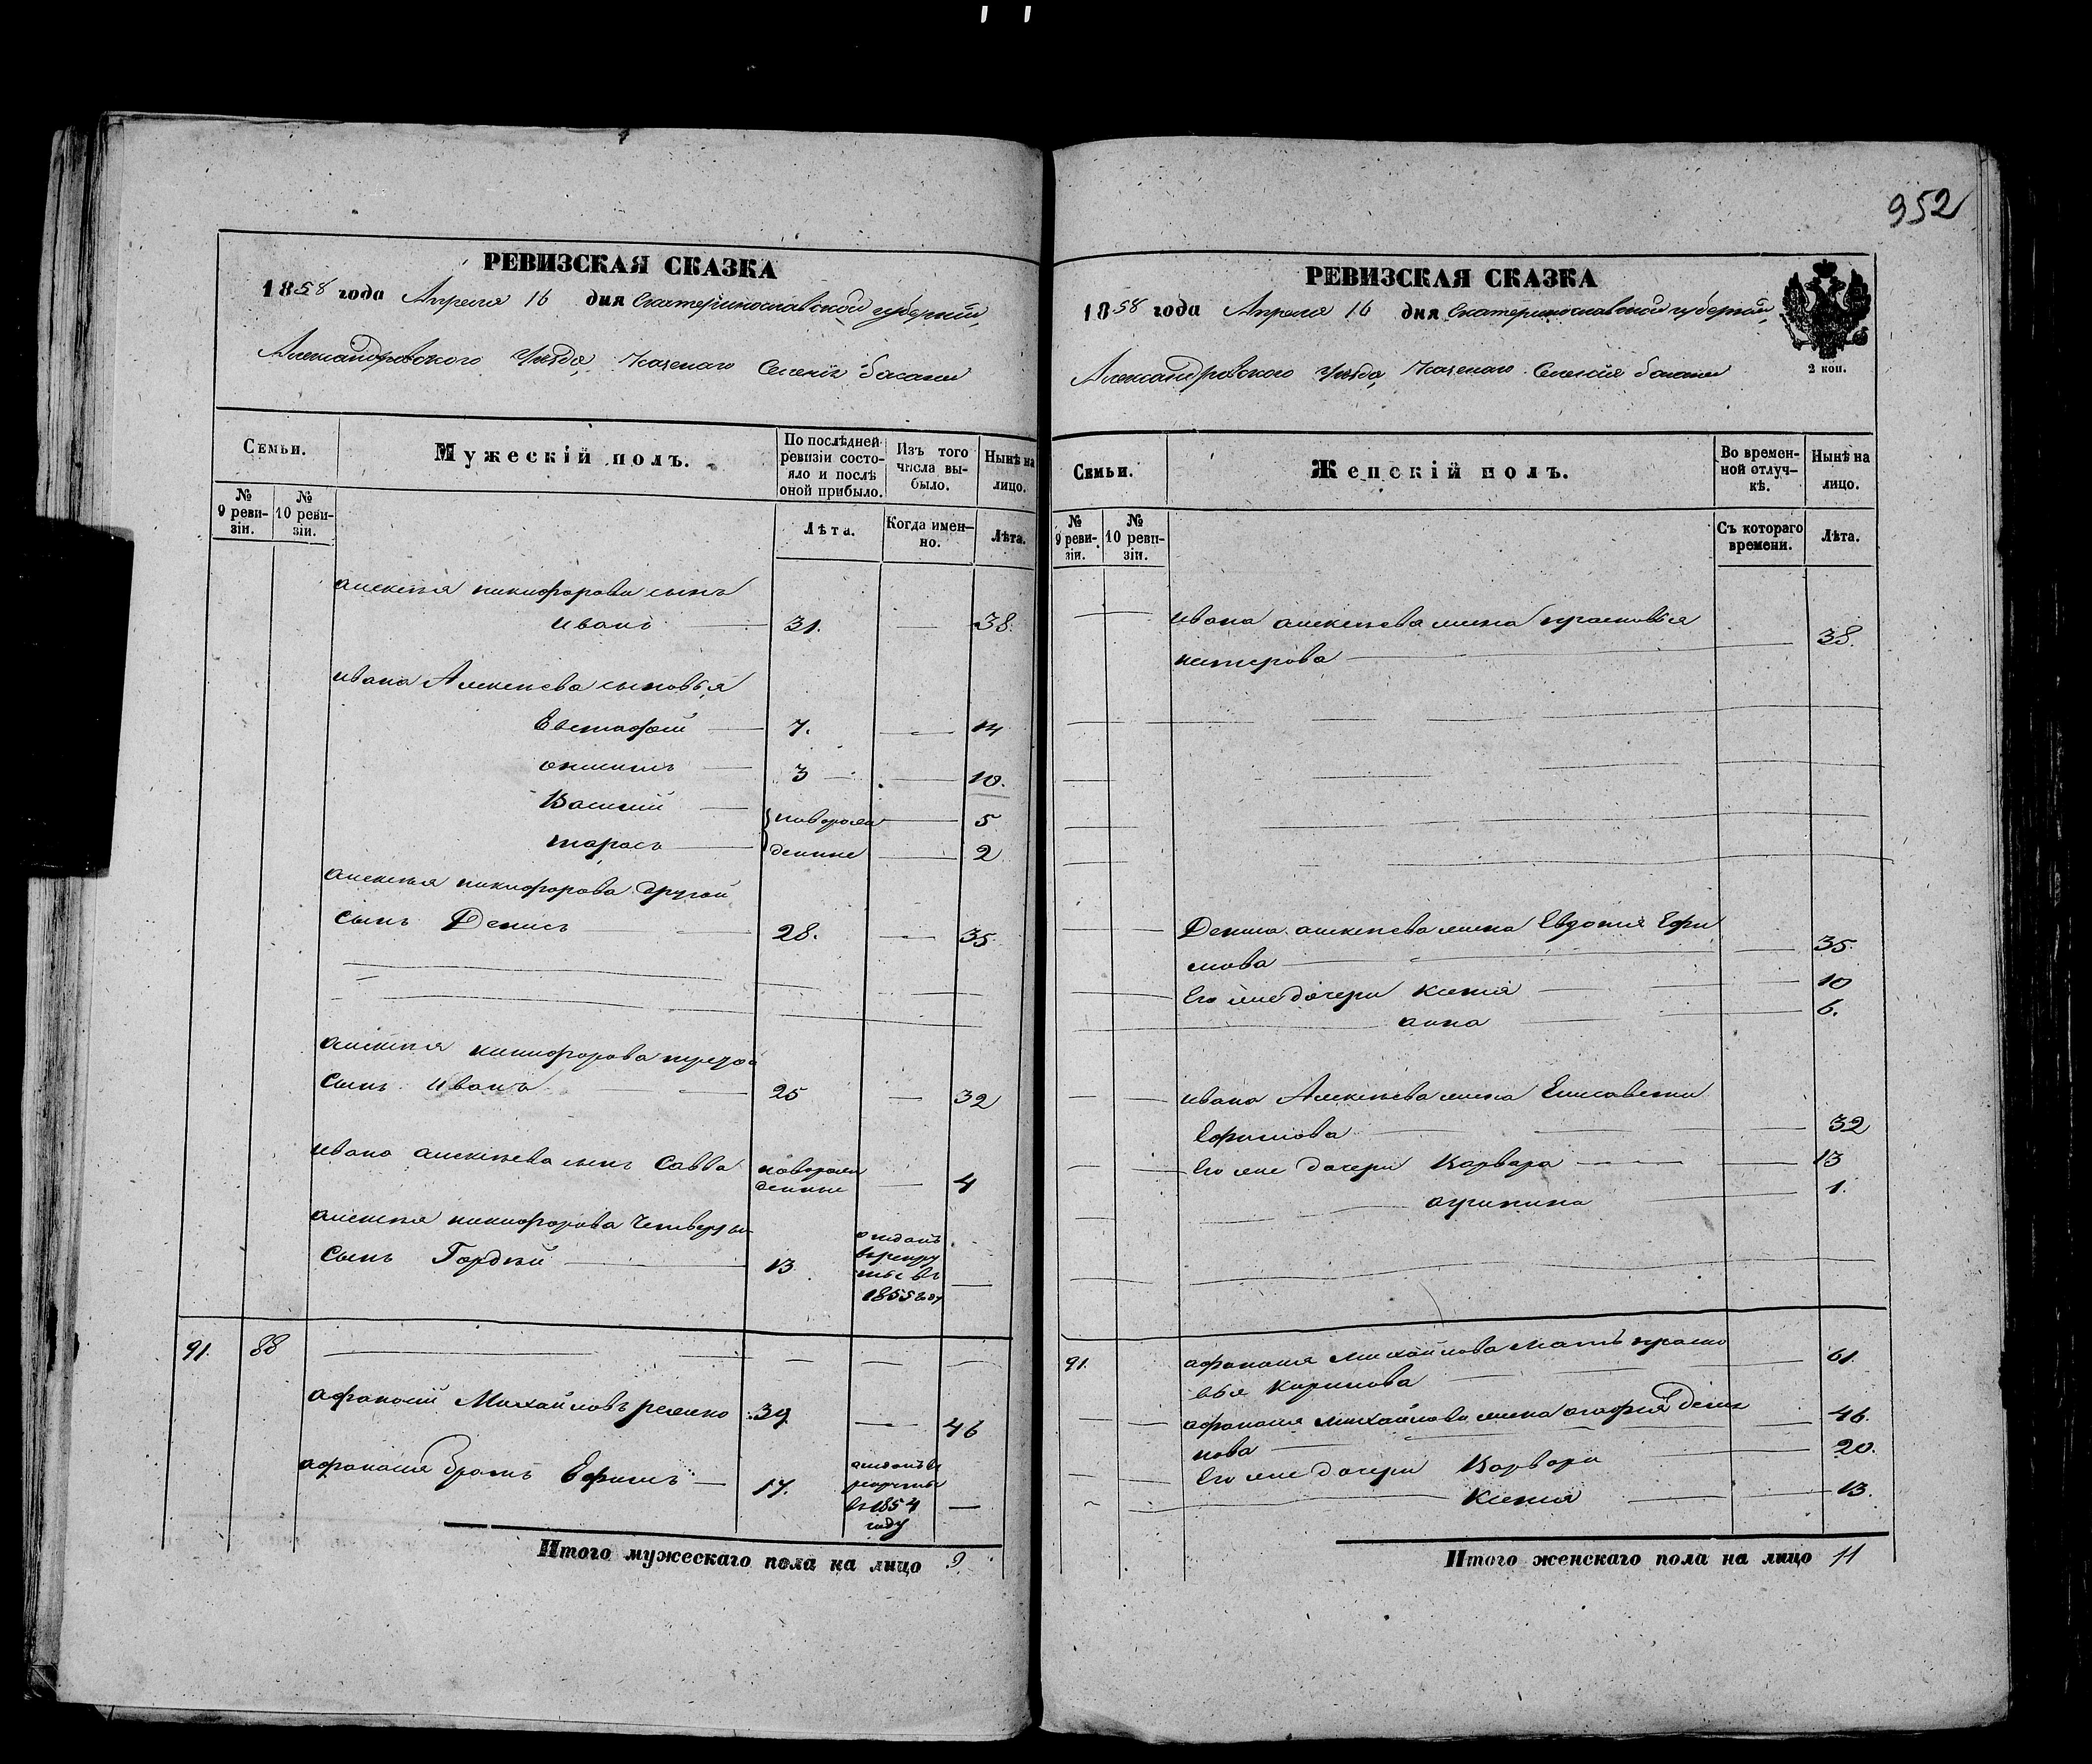 952
РЕВИЗСКАЯ СКАЗКА
1858 года Апреля 16 дня Екатеринославской губернии,
Александровского Уезда, Казенаго Селенія басани
Семьи.
Мужескій полъ.
По послѣдней ревизіи состояло и послѣ оной прибыло.
Изъ того числа выбыло.
Нынѣ на лицо.
№ 9 ревизіи.
№ 10 ревизіи.
Лѣта.
Когда именно.
Лѣта.
алексѣя никифорова сынъ
иванъ 31. 38.
ивана Алексѣева сыновья
Евстафій 7. 14
3 10.
Василій новорож 5
тарасъ денные 2
алексѣя никифорова другой
сынъ Денисъ 28. 35.
алексѣя никифорова третій
сынъ иванъ 25 32
ивана алексѣева сынъ Савва новорож
денные 4
алексѣя никифорова четверты
сынъ Гордѣй 13 отданъ
врекру
ты въ
1855 году
91. 88
афанасій Михайловъ 39. 46
афанасія братъ Ефимъ 17. отданъ в
рекруты
въ 1854
году
Итого мужескаго пола на лицо 9.
РЕВИЗСКАЯ СКАЗКА
1858 года Апреля 16 дня Екатеринославской губерніи,
Александровского Уезда, Казенаго Селенія басани
2 коп.
Семьи.
Женскій полъ.
Во временной отлучкѣ.
Нынѣ на лицо.
№ 9 ревизіи.
№ 10 ревизіи.
Съ котораго времени.
Лѣта.
ивана алексѣева жена прасковья
петерова 38.
Дениса алексѣева жена Евдокия Ефи
мова 35.
Его же дочери ксенія 10
анна 6.
ивана Алексѣева жена Елисавета
Ефимова 32
Его же дочери Варвара 13
агрипина 1.
91. афанасия михайлова мать праско
вья Кирилова 61.
афанасия михайлова жена агафия Дени
нова 46.
Его же дочери Варвара 20.
Ксенія 13.
Итого женскаго пола на лицо 11